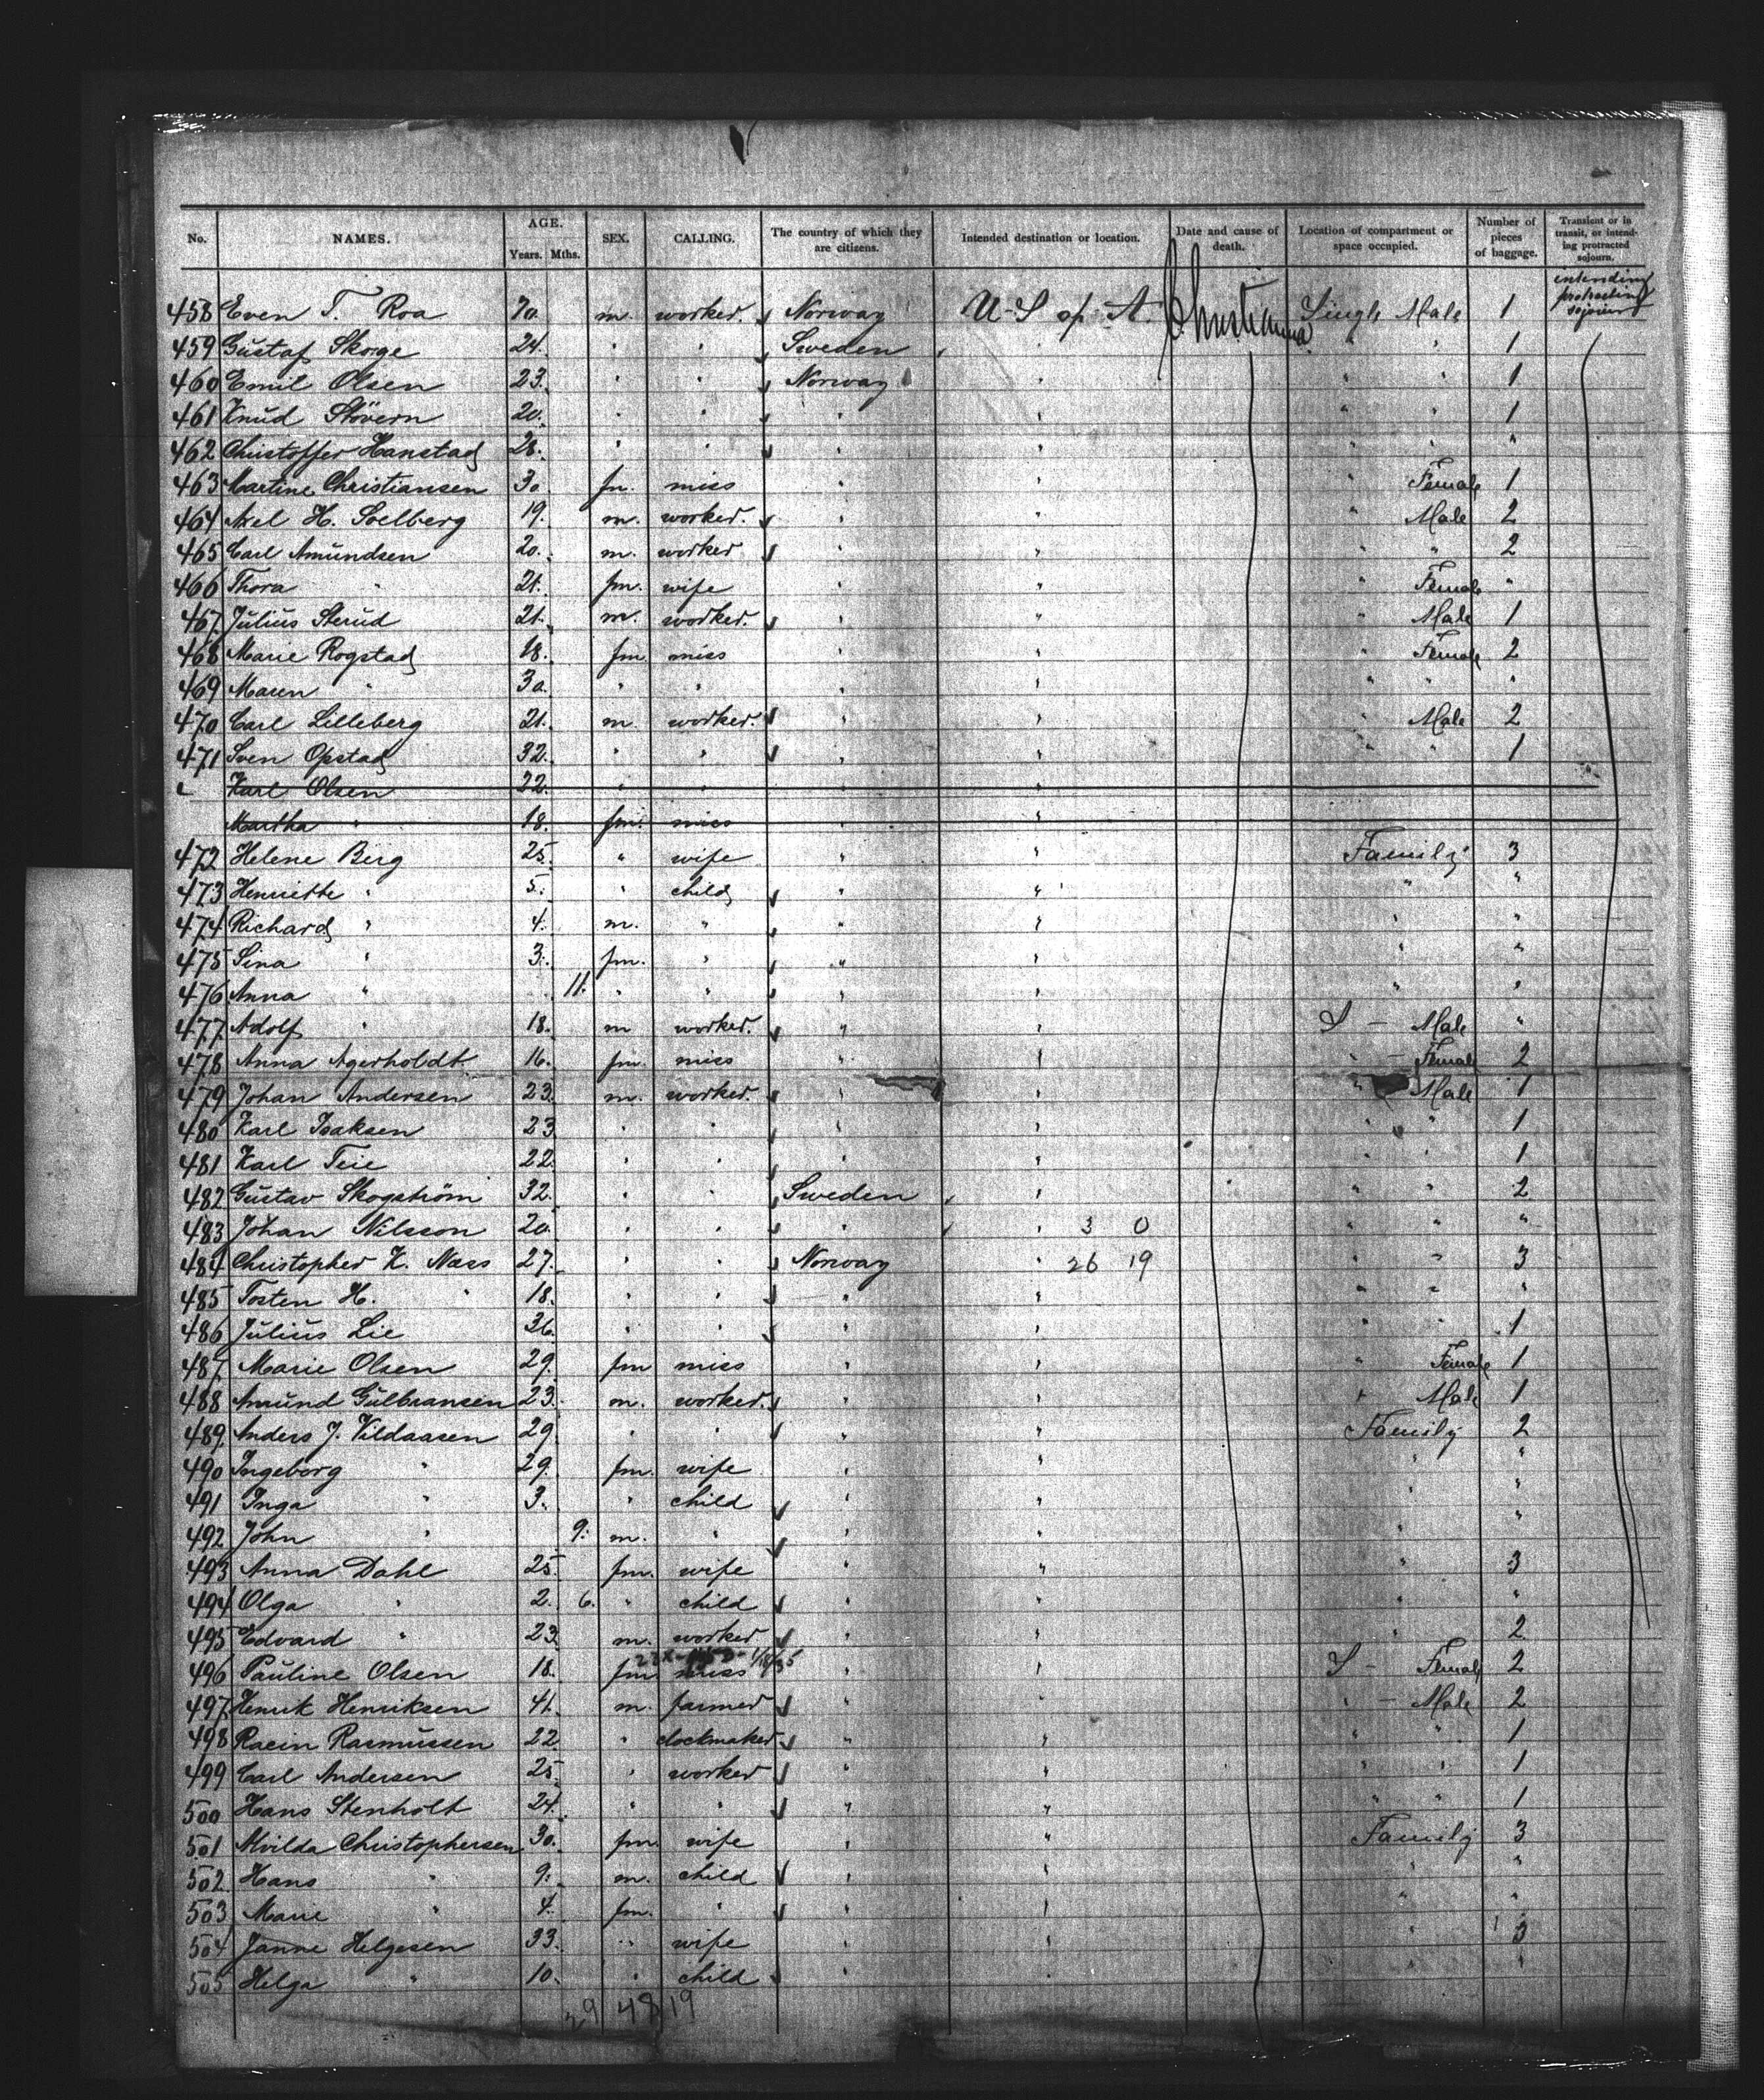 No. NAMES. AGE. Years. Mths. SEX. CALLING. The country of which they are citizens. Intended destination or location. Date and cause of death. Location of compartment or space occupied. Number of pieces of baggage. Transient or in transit, or intending protracted sojourn.
458 Even T. Roa 70. m. worker. Norway U-S of A. Christiania Single Male 1 intending protracting sojourn
459 Gustaf Skoge 24. " " Sweden " " " 1
460 Emil Olsen 23. " " Norway " " " 1
461 Knud Stövern 20. " " " " " " 1
462 Christoffer Hanstad 28. " " " " " " "
463 Martine Christiansen 30 fm. miss " " " Female 1
464 Axel H. Solberg 19. m. worker. " " " Male 2
465 Carl Amundsen 20. m. worker " " " " 2
466 Thora " 21. fm. wife " " " Female "
467 Julius Sterud 21. m. worker. " " " Male 1
468 Marie Rogstad 18. fm. miss " " " Female 2
469 Maren " 30. " " " " " " "
470 Carl Lilleberg 21. m. worker. " " " Male 2
471 Sven Opstad 32. " " " " " " 1
Karl Olsen 22. " " " "
Martha " 18. fm. miss " "
472 Helene Berg 25. " wife " " Family 3
473 Henriette " 5. " child " " " "
474 Richard " 4. m. " " " " "
475 Sina " 3. fm. " " " " "
476 Anna " 11. " " " " " "
477 Adolf " 18. m worker. " " S - Male "
478 Anna Agerholdt 16. fm. miss " " " - Female 2
479 Johan Andersen 23. m. worker. " " " Male 1
480 Karl Isaksen 23 " " " " " " 1
481 Karl Teie 22. " " " " " " 1
482 Gustav Skogström 32. " " Sweden " " " 2
483 Johan Nilsson 20. " " " " 3 0 " " "
484 Christopher K. Næss 27. " " Norway " 26 19 " " 3
485 Tosten H. " 18. " " " " " " "
486 Julius Lie 36. " " " " " " 1
487 Marie Olsen 29. fm miss " " " Female 1
488 Amund Gulbransen 23. m. worker. " " " Male 1
489 Anders J. Vildaasen 29. " " " " Family 2
490 Ingeborg " 29. fm. wife " " " "
491 Inga " 3. " child " " " "
492 John " 9. m. " " " " "
493 Anna Dahl 25. fm. wife " " " 3
494 Olga " 2. 6. " child " " " "
495 Edvard " 23. m. worker " " " 2
496 Pauline Olsen 18. fm. miss " " S - Female 2
497 Henrik Henriksen 41. m. farmer " " " - Male 2
498 Racin Rasmussen 22 " clockmaker " " " " 1
499 Carl Andersen 25. " worker " " " " 1
500 Hans Stenholt 24. " " " " " " 1
501 Alvilda Christophersen 30. fm. wife " " Family 3
502 Hans " 9. m. child " " " "
503 Marie " 4. fm. " " " " "
504 Janne Helgesen 33. " wife " " " 3
505 Helga " 10. " child " " " "
29 48 19